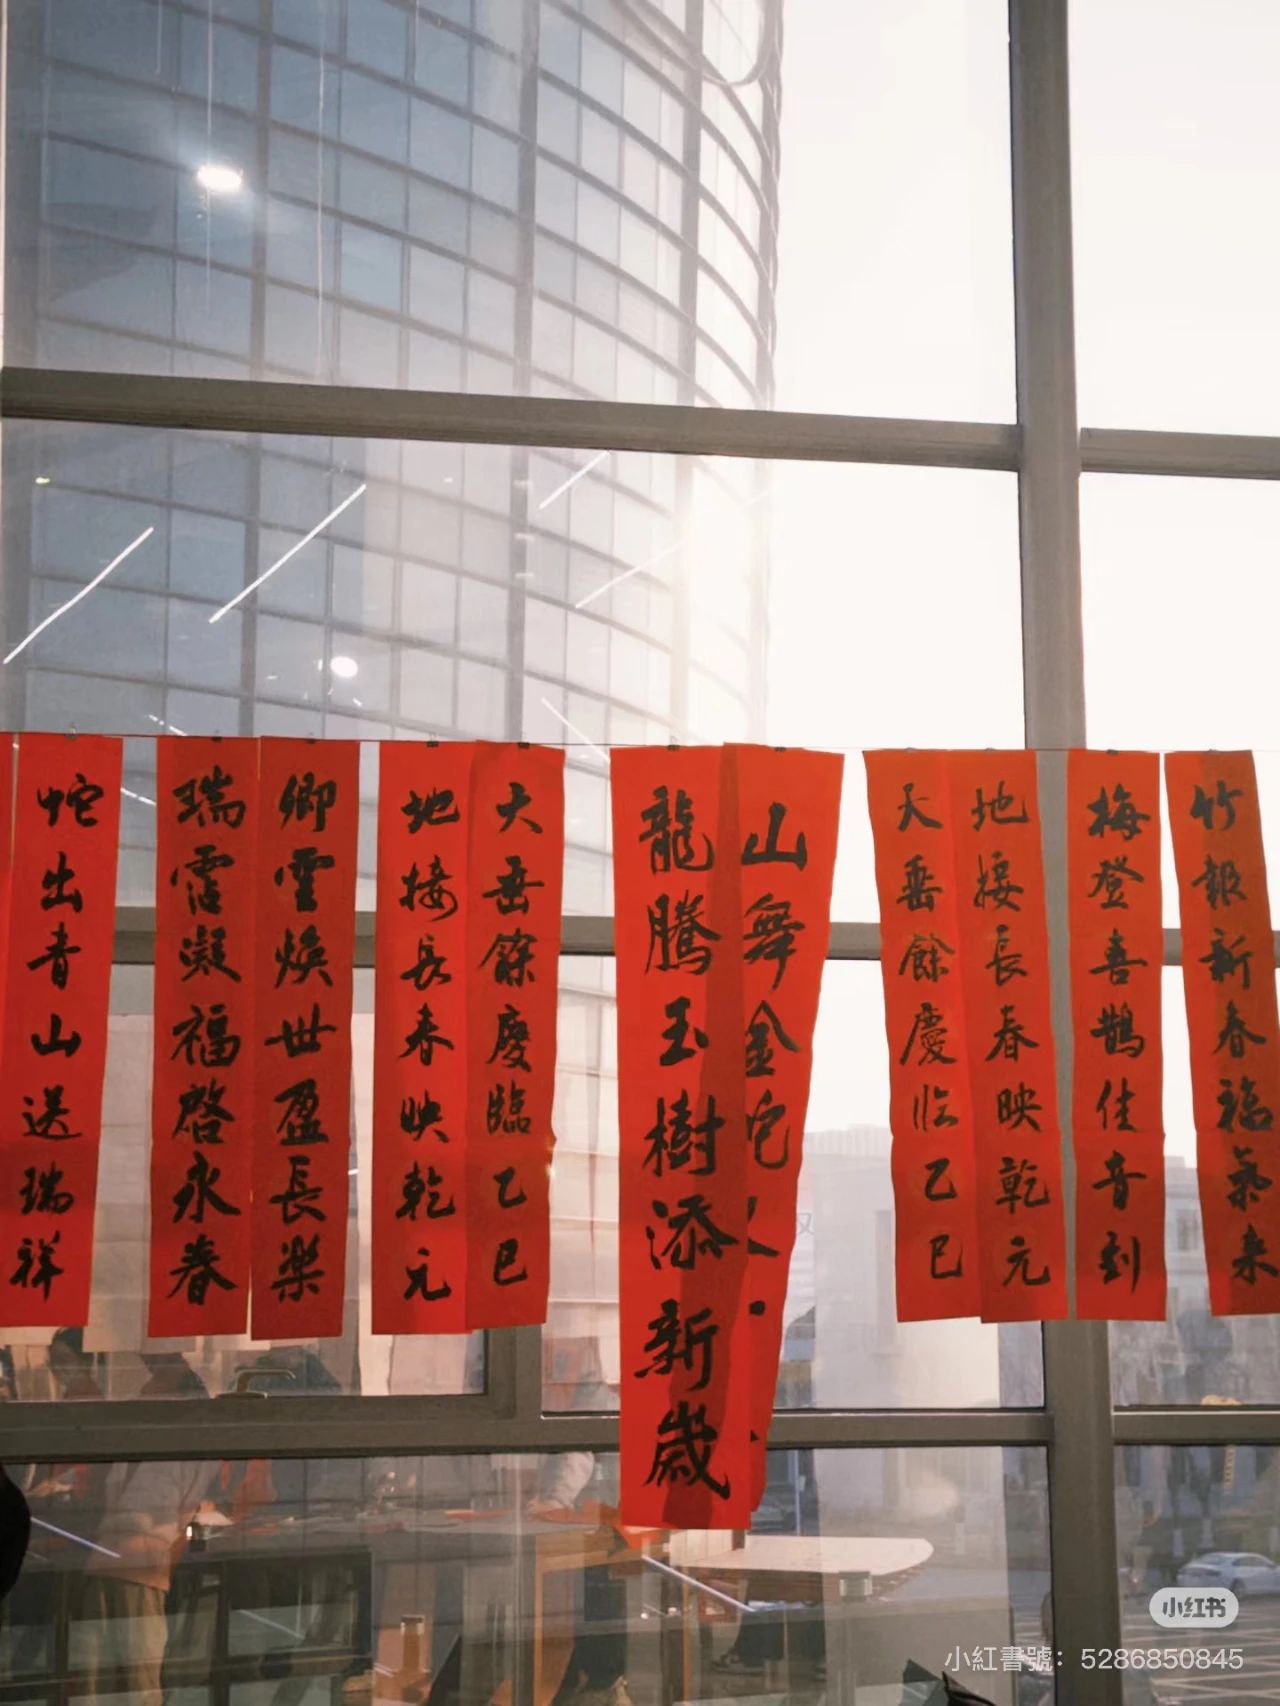 竹報新春福氣来
梅登喜鵲佳音到
地接長春映乾元
天垂餘慶临乙巳
山舞金蛇
龍騰玉樹添新歲
天垂餘慶臨乙巳
地接長春映乾元
卿雲焕世盈長樂
瑞霭凝福啓永春
蛇出青山送瑞祥
小红书
小紅書號：5286850845